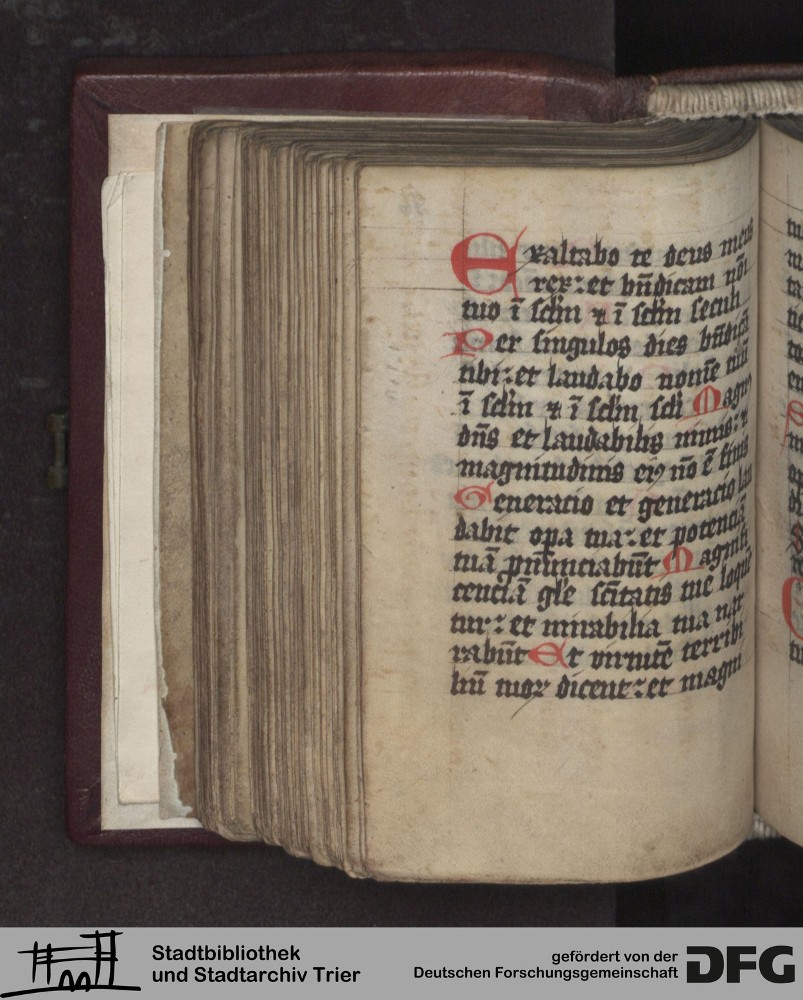 Exaltabo te deus meus
rex : et bn̄dicam nōi
tuo ī sclm̄ ⁊ ī sclm̄ seculi
Per singulos dies bn̄dicā
tibi : et laudabo nomē tuū
ī sclm̄ ⁊ ī sclm̄ scli Magn⁹
dn̄s et laudabilis nimis : ⁊
magnitudinis ei⁹ nō ē finis
Generacio et generacio lau
dabit opa tua : et potenciā
tuā pnūnciabūt Magnifi
cenciā gl̄e sc̄itatis tue loquē
tur : et mirabilia tua nar
rabūt Et virtutē terribi
liū tuoꝝ dicent : et magni
Stadtbibliothek
und Stadtarchiv Trier
gefördert von der
Deutschen Forschungsgemeinschaft
DFG